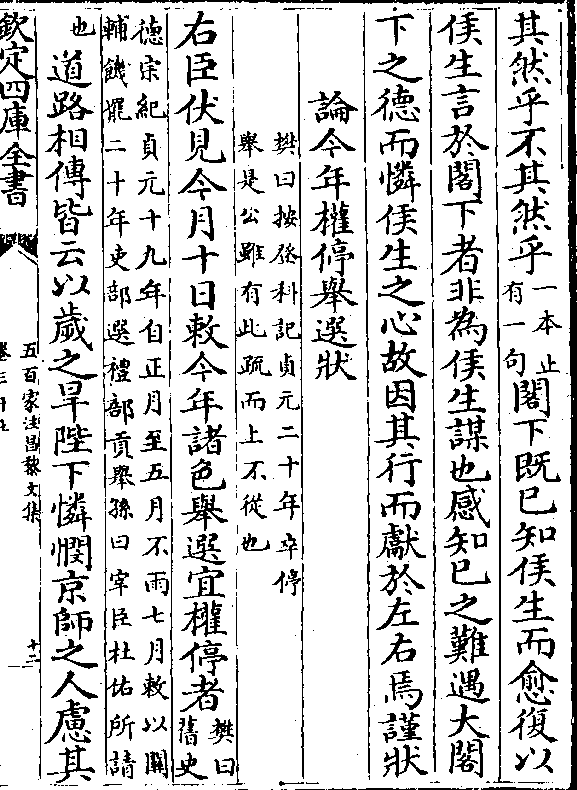 其然乎不其然乎
一本止
有一句
閣下既已知侯生而愈復以
侯生言於閣下者非為侯生謀也感知已之難遇大閣
下之德而憐侯生之心故因其行而獻於左右焉謹狀
論今年權停舉選狀
樊曰按登科記貞元二十年卒停
舉是公雖有此疏而上不從也
右臣伏見今月十日敕今年諸色舉選宜權停者
樊曰
舊史
德宗紀貞元十九年自正月至五月不雨七月敕以關
輔饑罷二十年吏部選禮部貢舉孫曰宰臣杜佑所請
也
道路相傳皆云以歲之旱陛下憐憫京師之人慮其
欽定四庫全書
五百家注昌黎文集
卷三十七
十二